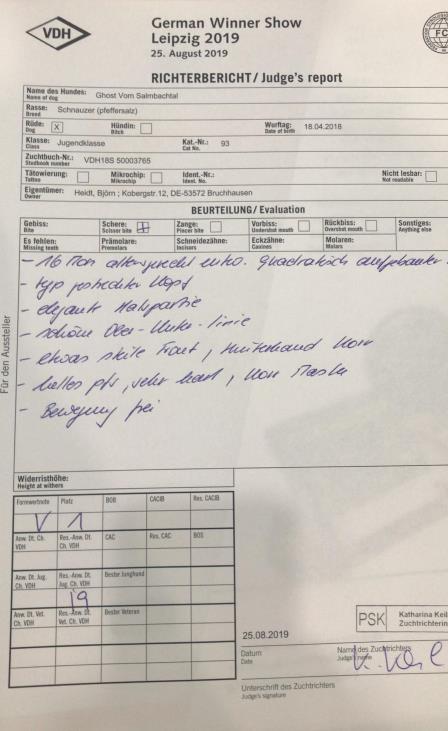 VDH
German Winner Show
Leipzig 2019
25. August 2019
FC
RICHTERBERICHT / Judge's report
Name des Hundes: Ghost Vom Salmbachtal
Name of dog
Rasse: Schnauzer (pfeffersalz)
Breed
Rüde: X Hündin: Wurftag: 18.04.2018
Dog Bitch Date of birth
Klasse: Jugendklasse Kat.-Nr.: 93
Class Cat No.
Zuchtbuch-Nr.: VDH18S 50003765
Studbook number
Tätowierung: Mikrochip: Ident.-Nr.: Nicht lesbar:
Tattoo Mikrochip Ident. No. Not readable
Eigentümer: Heidt, Björn ; Kobergstr.12, DE-53572 Bruchhausen
Owner
BEURTEILUNG / Evaluation
Gebiss: Schere: Zange: Vorbiss: Rückbiss: Sonstiges:
Bite Scissor bite Pincer bite Undershot mouth Overshot mouth Anything else
Es fehlen: Prämolare: Schneidezähne: Eckzähne: Molaren:
Missing teeth Premolars Incisors Canines Molars
- 16 Mon altersgerecht entw. quadratisch aufgebauter
- typ gerechter Kopf
- elegante Halspartie
- schöne Ober-Unter-linie
- etwas steile Front, Hinterhand korr
- helles pfs, sehr hart, korr Maske
- Bewegung frei
Für den Aussteller
Widerristhöhe:
Height at withers
Formwertnote Platz BOB CACIB Res. CACIB
V 1
Anw. Dt. Ch. VDH Res.-Anw. Dt. Ch. VDH CAC Res. CAC BOS
Anw. Dt. Jug. Ch. VDH Res.-Anw. Dt. Jug. Ch. VDH Bester Junghund
Anw. Dt. Vet. Ch. VDH Res.-Anw. Dt. Vet. Ch. VDH Bester Veteran
PSK Katharina Keil
Zuchtrichterin
25.08.2019
Datum Name des Zuchtrichters
Date Judge's name
K. Keil
Unterschrift des Zuchtrichters
Judge's signature